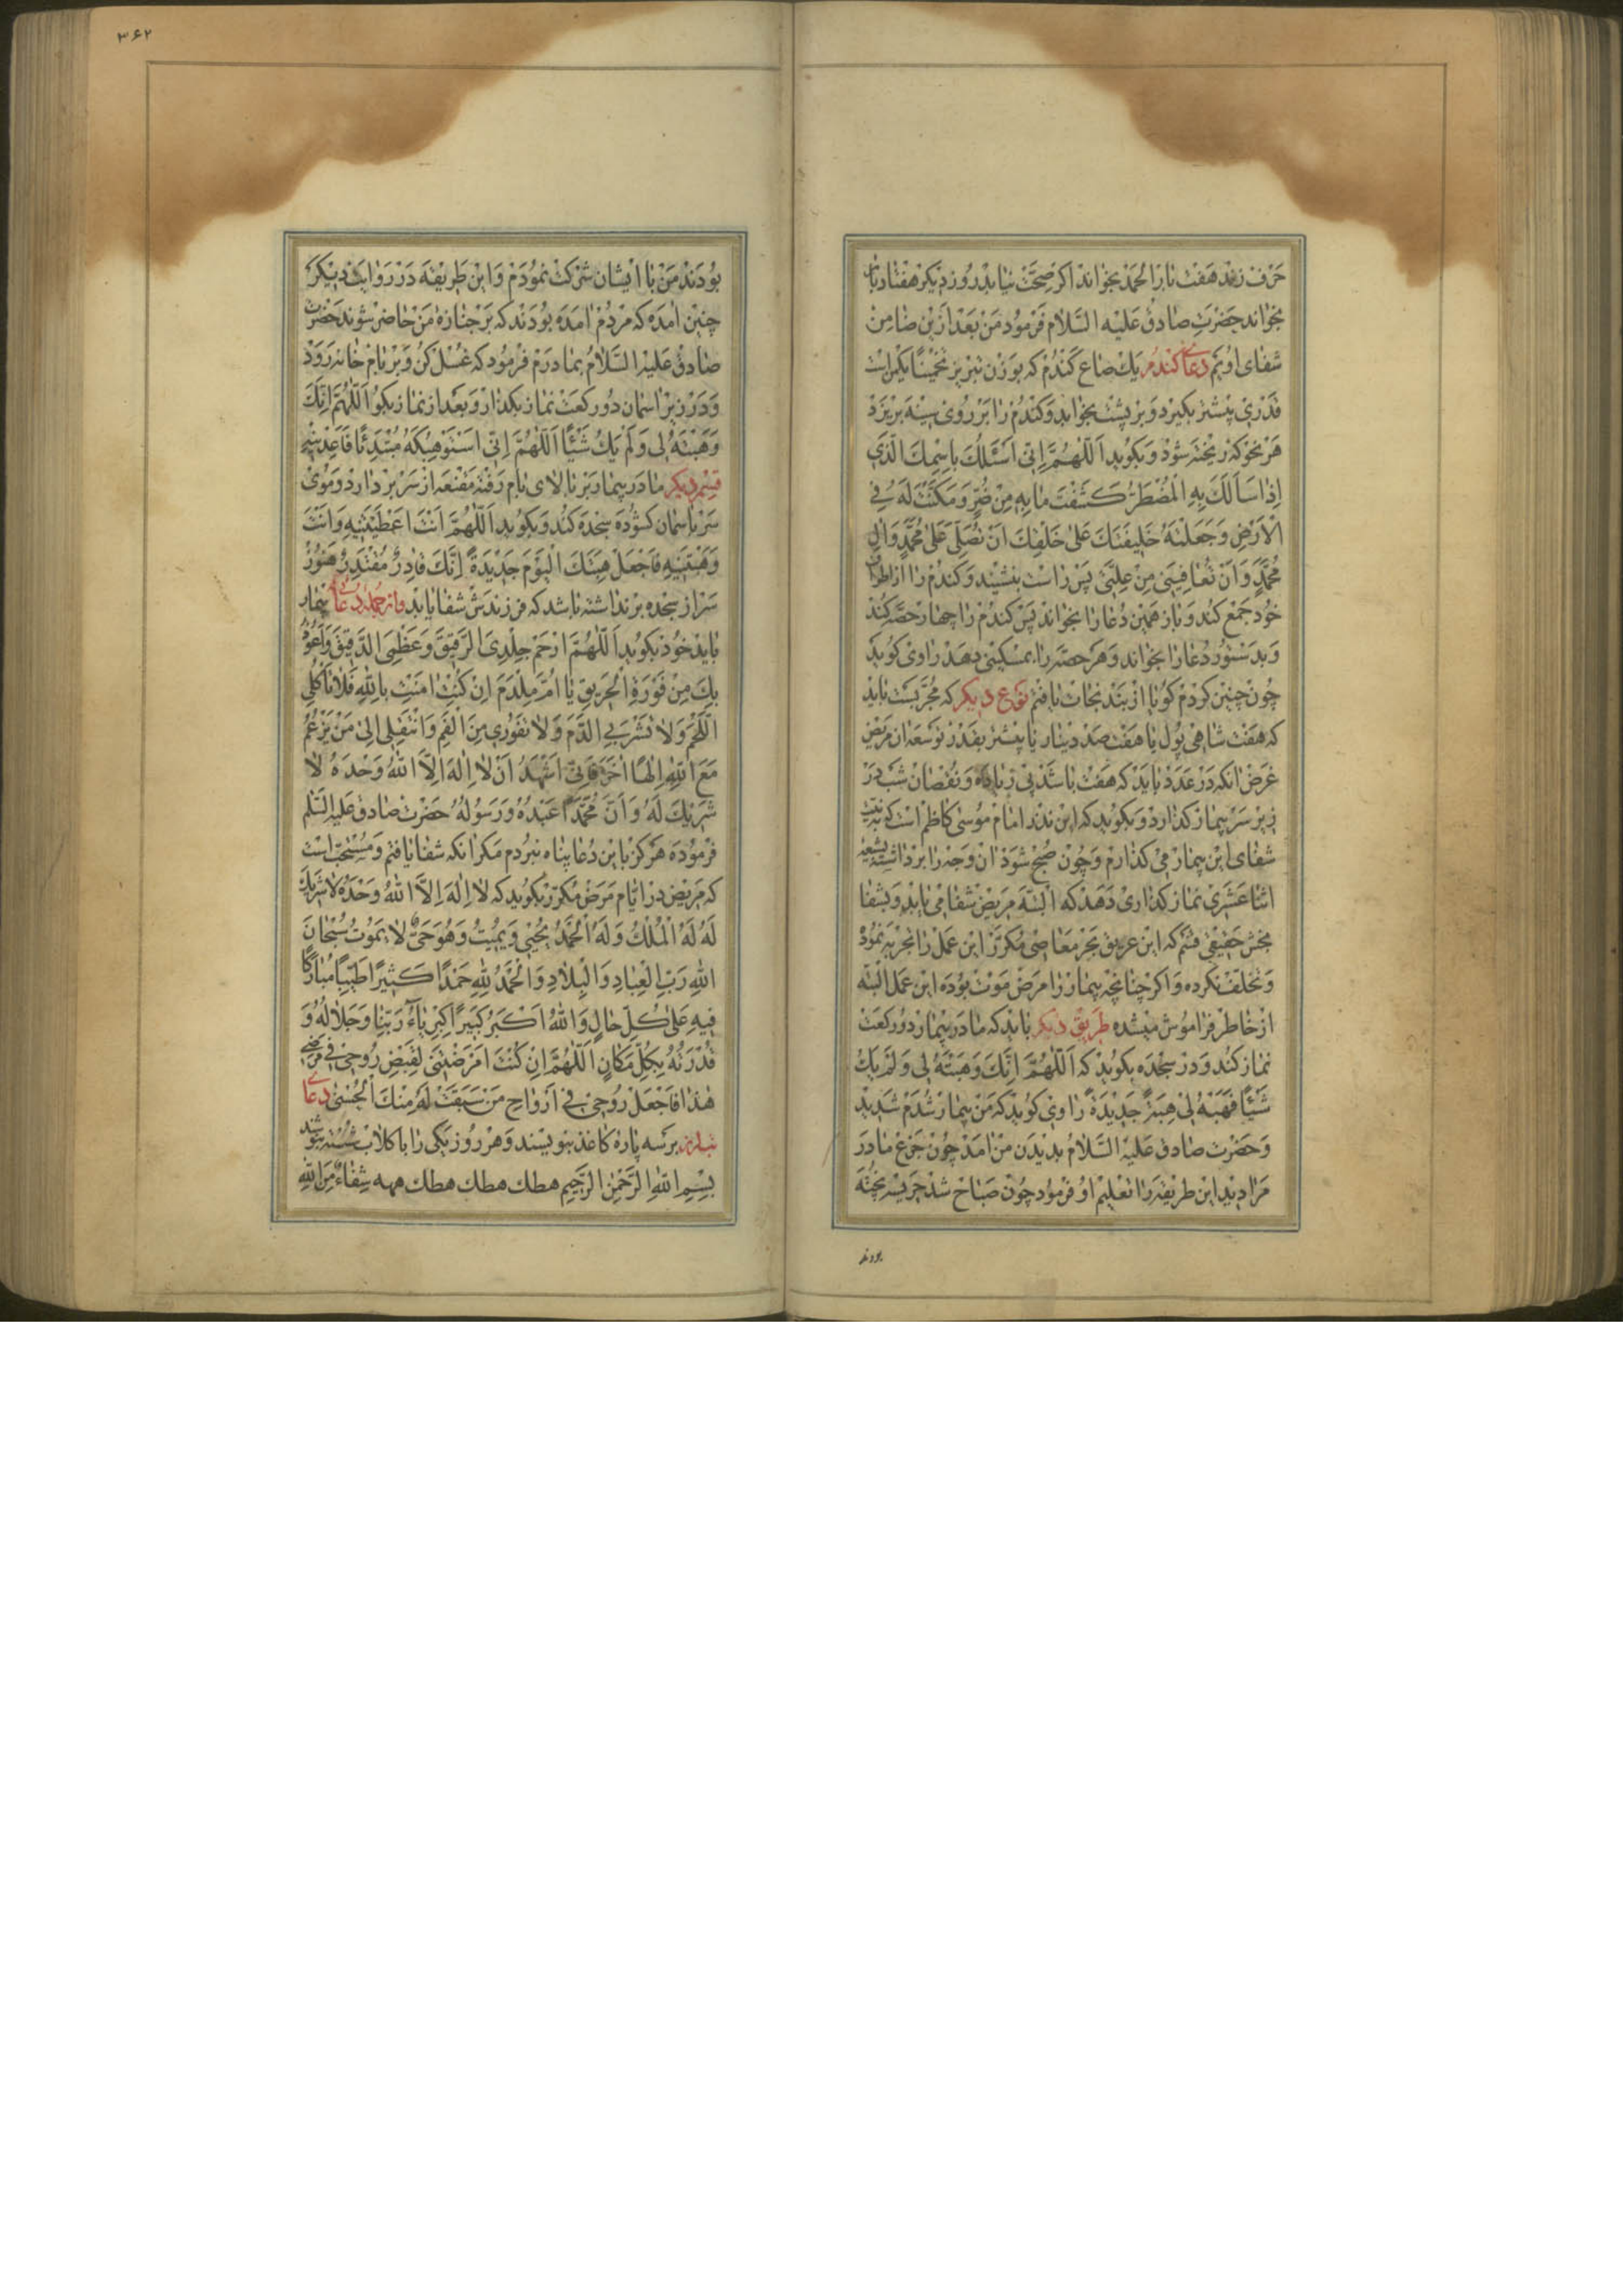 حرف نزند هفت بار الحمد بخواند اگر صحت نیابد روز دیگر هفتاد بار
بخواند حضرت صادق علیه السلام فرمود من بعد ازین ضامن
شفای اویم دعای گندم یک صاع گندم که بوزن تبریز تخمینا یکمن است
قدری بیشتر بگیرد و بر پشت بخوابد و گندم را بر روی سینه بریزد
هر نحو که ریخته شود و بگوید اَللّٰهُمَّ اِنّی اَسْئَلُكَ بِاسْمِكَ الَّذی
اِذا سَاَلَكَ بِهِ الْمُضْطَرُّ كَشَفْتَ ما بِهِ مِنْ ضُرٍّ وَمَكَّنْتَ لَهُ فِی
الْاَرْضِ وَجَعَلْتَهُ خَلیفَتَكَ عَلیٰ خَلْقِكَ اَنْ تُصَلِّیَ عَلیٰ مُحَمَّدٍ وَالِ
مُحَمَّدٍ وَاَنْ تُعافِیَنی مِنْ عِلَّتی پس راست بنشیند و گندم را از اطراف
خود جمع کند و باز همین دعا را بخواند پس گندم را چهار حصه کند
و بدستور دعا را بخواند و هر حصه را بمسکینی دهد راوی گوید
چون چنین کردم گویا از بند نجات یافتم نوع دیگر که مجربست باید
که هفت شاهی پول یا هفت صد دینار یا بیشتر بقدر توسعه ان مریض
غرض انکه در عدد باید که هفت باشد بی زیاده و نقصان شب در
زیر سر بیمار گذارد و بگوید که این نذر امام موسی کاظم است که به نیت
شفای این بیمار می گذارم و چون صبح شود ان وجه را برداشته بشیعه
اثنا عشری نماز گذاری دهد که البته مریض شفا می یابد و بشفا
بخش حقیقی قسم که این غریق بحر معاصی مکرر این عمل را تجربه نمود
و تخلف نکرده و اگر چنانچه بیمار را مرض موت بوده این عمل البته
از خاطر فراموش میشده طریق دیگر باید که مادر بیمار دو رکعت
نماز کند و در سجده بگوید که اَللّٰهُمَّ اِنَّكَ وَهَبْتَهُ لی وَلَمْ یَكُ
شَیْئًا فَهَبْهُ لی هِبَةً جَدیدَةً راوی گوید که من بیمار شدم شدید
و حضرت صادق علیه السلام بدیدن من امد چون جزع مادر
مرا دید این طریقه را تعلیم او فرمود چون صباح شد هریسه پخته
بودند
۳۶۲
بودند من با ایشان شرکت نمودم و این طریقه در روایت دیگر
چنین امده که مردم امده بودند که بر جنازه من حاضر شوند حضرت
صادق علیه السلام بمادرم فرمود که غسل کن و بر بام خانه رود
و در زیر اسمان دو رکعت نماز بگذار و بعد از نماز بگو اَللّٰهُمَّ اِنَّكَ
وَهَبْتَهُ لی وَلَمْ یَكُ شَیْئًا اَللّٰهُمَّ اِنّی اَسْتَوْهِبُكَهُ مُبْتَدِئًا فَاَعِرْنیهِ
قسم دیگر مادر بیمار بر بالای بام رفته مقنعه از سر بر دارد و موی
سر باسمان گشوده سجده کند و بگوید اَللّٰهُمَّ اَنْتَ اَعْطَیْتَنیهِ وَاَنْتَ
وَهَبْتَنیهِ فَاجْعَلْ هِبَتَكَ الْیَوْمَ جَدیدَةً اِنَّكَ قادِرٌ مُقْتَدِرٌ هنوز
سر از سجده بر نداشته باشد که فرزندش شفا یابد و از جمله دعای بیمار
باید خود بگوید اَللّٰهُمَّ ارْحَمْ جِلْدِیَ الرَّقیقَ وَعَظْمِیَ الدَّقیقَ وَاَعُوذُ
بِكَ مِنْ فَوْرَةِ الْحَریقِ یا اُمَّ مِلْدَمَ اِنْ كُنْتِ اٰمَنْتِ بِاللّٰهِ فَلا تَاْكُلِی
اللَّحْمَ وَلا تَشْرَبِی الدَّمَ وَلا تَفُوری مِنَ الْفَمِ وَانْتَقِلی اِلیٰ مَنْ یَزْعُمُ
مَعَ اللّٰهِ اِلٰهًا اٰخَرَ فَاِنّی اَشْهَدُ اَنْ لا اِلٰهَ اِلَّا اللّٰهُ وَحْدَهُ لا
شَریكَ لَهُ وَاَنَّ مُحَمَّدًا عَبْدُهُ وَرَسُولُهُ حضرت صادق علیه السلم
فرموده هرگز باین دعا پناه نبردم مگر انکه شفا یافتم و مستحب است
که مریض در ایام مرض مکرر بگوید که لا اِلٰهَ اِلَّا اللّٰهُ وَحْدَهُ لا شَریكَ
لَهُ لَهُ الْمُلْكُ وَلَهُ الْحَمْدُ یُحْیی وَیُمیتُ وَهُوَ حَیٌّ لا یَمُوتُ سُبْحانَ
اللّٰهِ رَبِّ الْعِبادِ وَالْبِلادِ وَالْحَمْدُ لِلّٰهِ حَمْدًا كَثیرًا طَیِّبًا مُبارَكًا
فیهِ عَلیٰ كُلِّ حالٍ وَاللّٰهُ اَكْبَرُ كَبیرًا كِبْرِیاءُ رَبِّنا وَجَلالُهُ وَ
قُدْرَتُهُ بِكُلِّ مَكانٍ اَللّٰهُمَّ اِنْ كُنْتَ اَمْرَضْتَنی لِقَبْضِ رُوحی فی مَرَضی
هٰذا فَاجْعَلْ رُوحی فی اَرْواحِ مَنْ سَبَقَتْ لَهُ مِنْكَ الْحُسْنیٰ دعای
بر سه پاره کاغذ بنویسند و هر روز یکی را با گلاب شسته بنوشد
بِسْمِ اللّٰهِ الرَّحْمٰنِ الرَّحیمِ هطك هطك هطك مهه شِفاءٌ مِنَ اللّٰهِ